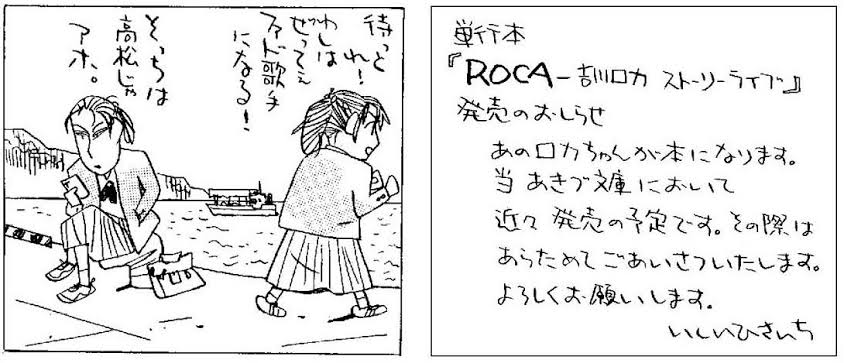 待っと
れ!
わしは
ぜってぇ
ファド歌手
になる!
そっちは
高松じゃ
アホ。
単行本
『ROCA ー 吉川ロカ ストーリーライブ』
発売のおしらせ
あのロカちゃんが本になります。
当 あきづ文庫において
近々 発売の予定です。その際は
あらためてごあいさついたします。
よろしくお願いします。
いしいひさいち